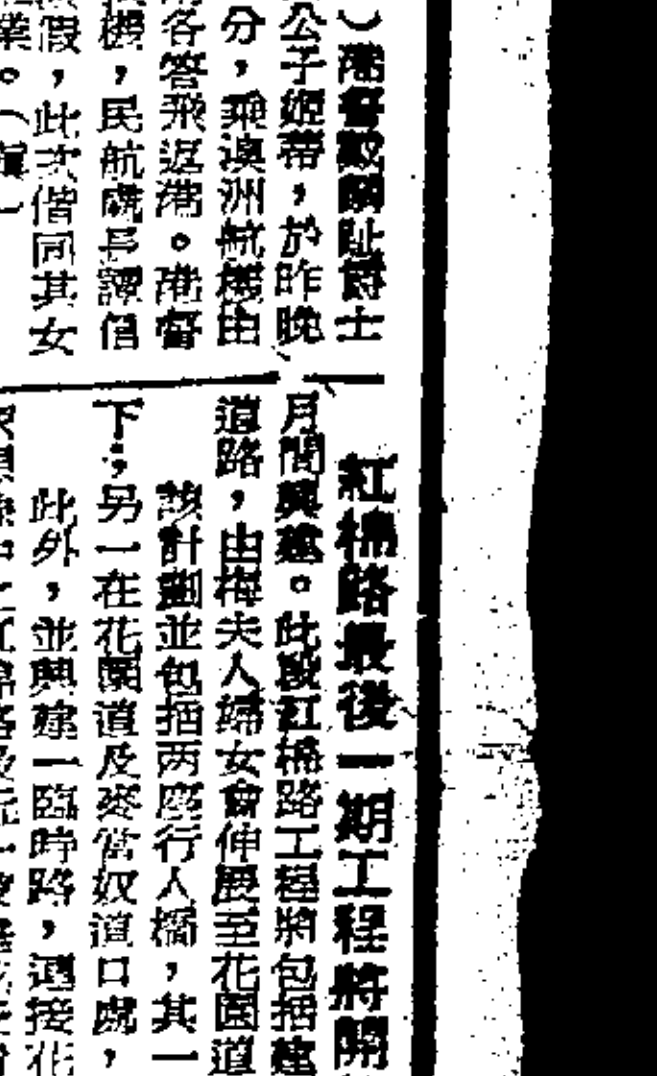 ）港督戴麟趾爵士
公子姬蒂，於昨晚
分，乘澳洲航機由
各答飛返港。港督
機，民航處長譚信
假，此次偕同其女
業。（
紅棉路最後一期工程將開
月間興建。此段紅棉路工程將包括建
道路，由梅夫人婦女會伸展至花園道
該計劃並包括两座行人橋，其一
下；另一在花園道及麥當奴道口處，
此外，並興建一臨時路，連接花